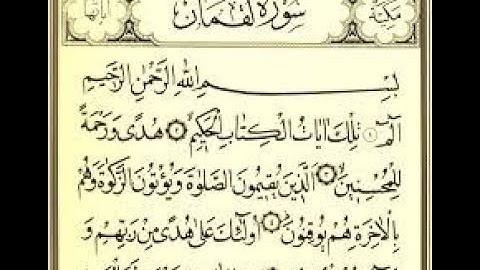 مكية سُورَةُ لُقْمَان آياتها
بِسْمِ اللّٰهِ الرَّحْمٰنِ الرَّحِيمِ
الٓمٓ ۝١ تِلْكَ اٰيَاتُ الْكِتَابِ الْحَكِيمِ ۝٢ هُدًى وَرَحْمَةً
لِلْمُحْسِنِينَ ۝٣ اَلَّذِينَ يُقِيمُونَ الصَّلٰوةَ وَيُؤْتُونَ الزَّكٰوةَ وَهُمْ
بِالْاٰخِرَةِ هُمْ يُوقِنُونَ ۝٤ اُولٰٓئِكَ عَلٰى هُدًى مِنْ رَبِّهِمْ وَ